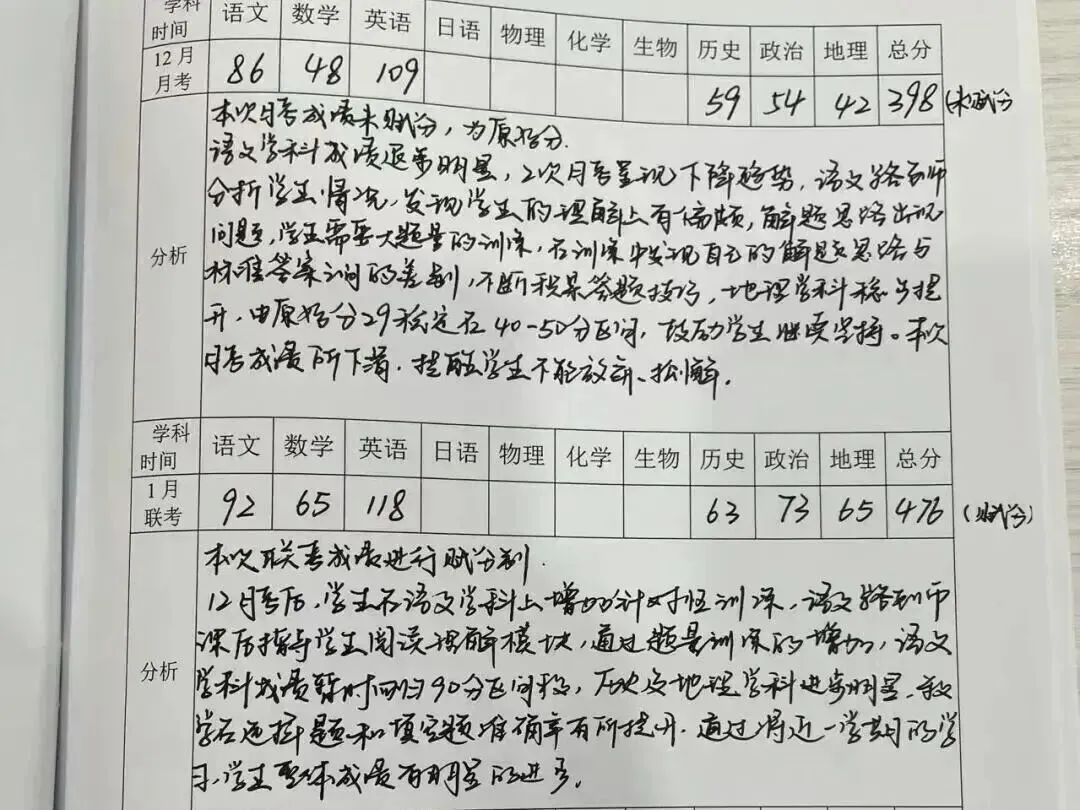 学科 语文 数学 英语 日语 物理 化学 生物 历史 政治 地理 总分
时间
12月 月考 86 48 109 59 54 42 398 (未赋分
分析
本次月考成绩未赋分，为原始分.
语文学科成绩退步明显，2次月考呈现下降趋势，语文老师
分析学生情况，发现学生的理解上有偏颇，解题思路出现
问题，学生需要大题量的训练，在训练中发现自己的解题思路与
标准答案之间的差别，不断积累答题技巧，地理学科稳步提
升，由原始分29稳定在40-50分区间，鼓励学生继续坚持。本次
月考成绩所下滑.提醒学生不能放弃、松懈.
学科 语文 数学 英语 日语 物理 化学 生物 历史 政治 地理 总分
时间
1月 联考 92 65 118 63 73 65 476 (赋分)
分析
本次联考成绩进行赋分制.
12月考后，学生在语文学科上增加针对性训练，语文老师
课后指导学生阅读理解模块，通过题量训练的增加，语文
学科成绩暂时回归90分区间段，历史与地理学科进步明显.数
学在选择题和填空题准确率有所提升.通过将近一学期的学
习、学生整体成绩有明显的进步。